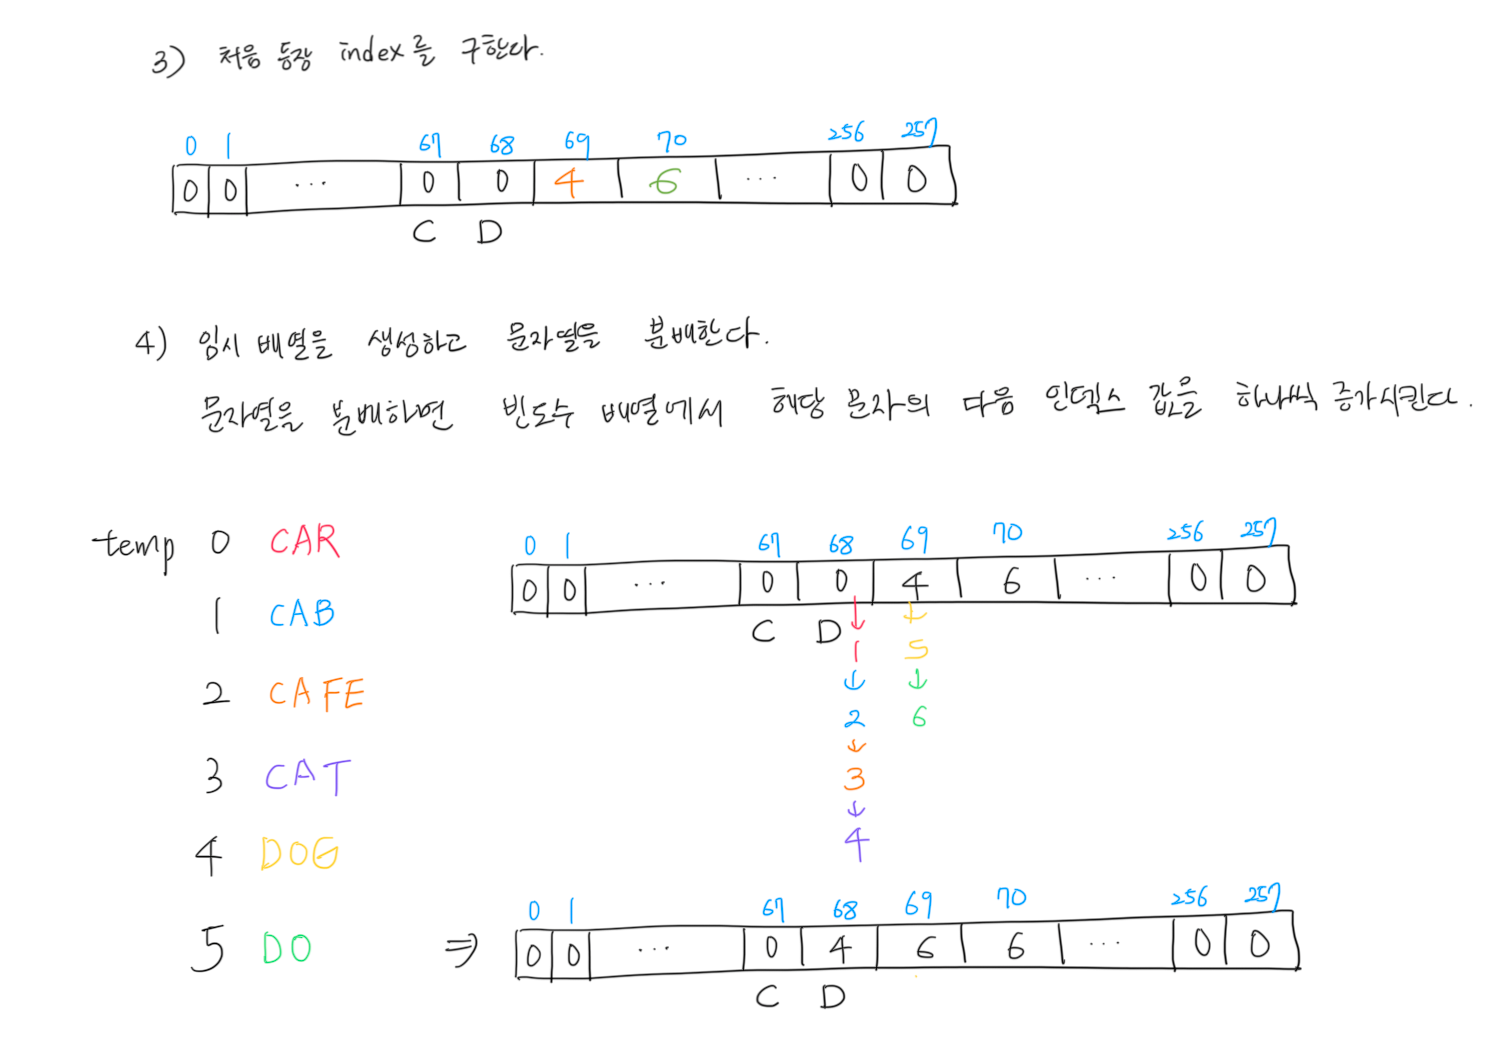 3) 처음 등장 index를 구한다.
0 1 67 68 69 70 256 257
0 0 ... 0 0 4 6 ... 0 0
C D
4) 임시 배열을 생성하고 문자열을 분배한다.
문자열을 분배하면 빈도수 배열에서 해당 문자의 다음 인덱스 값을 하나씩 증가시킨다.
temp 0 CAR
1 CAB
2 CAFE
3 CAT
4 DOG
5 DO
0 1 67 68 69 70 256 257
0 0 ... 0 0 4 6 ... 0 0
C D ↓ ↓
1 5
↓ ↓
2 6
↓
3
↓
4
0 1 67 68 69 70 256 257
⇒ 0 0 ... 0 4 6 6 ... 0 0
C D